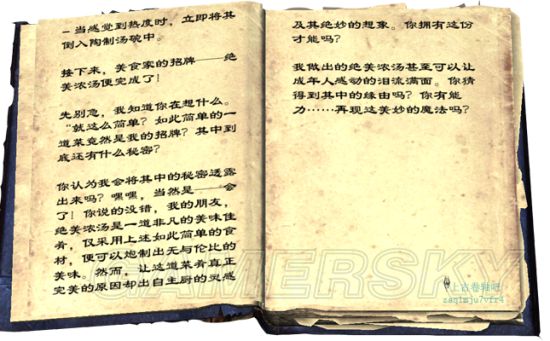 －当感觉到热度时，立即将其
倒入陶制汤碗中。
接下来，美食家的招牌——绝
美浓汤便完成了！
先别急，我知道你在想什么。
“就这么简单？如此简单的一
道菜竟然是我的招牌？其中到
底还有什么秘密？
你认为我会将其中的秘密透露
出来吗？嘿嘿，当然是——会
了！你说的没错，我的朋友，
绝美浓汤是一道非凡的美味佳
肴，仅采用上述如此简单的食
材，便可以炮制出无与伦比的
美味。然而，让这道菜肴真正
完美的原因却出自主厨的灵感
及其绝妙的想象。你拥有这份
才能吗？
我做出的绝美浓汤甚至可以让
成年人感动的泪流满面。你猜
得到其中的缘由吗？你有能
力……再现这美妙的魔法吗？
GAMERSKY
上古卷轴吧
zaq1mju7vfr4